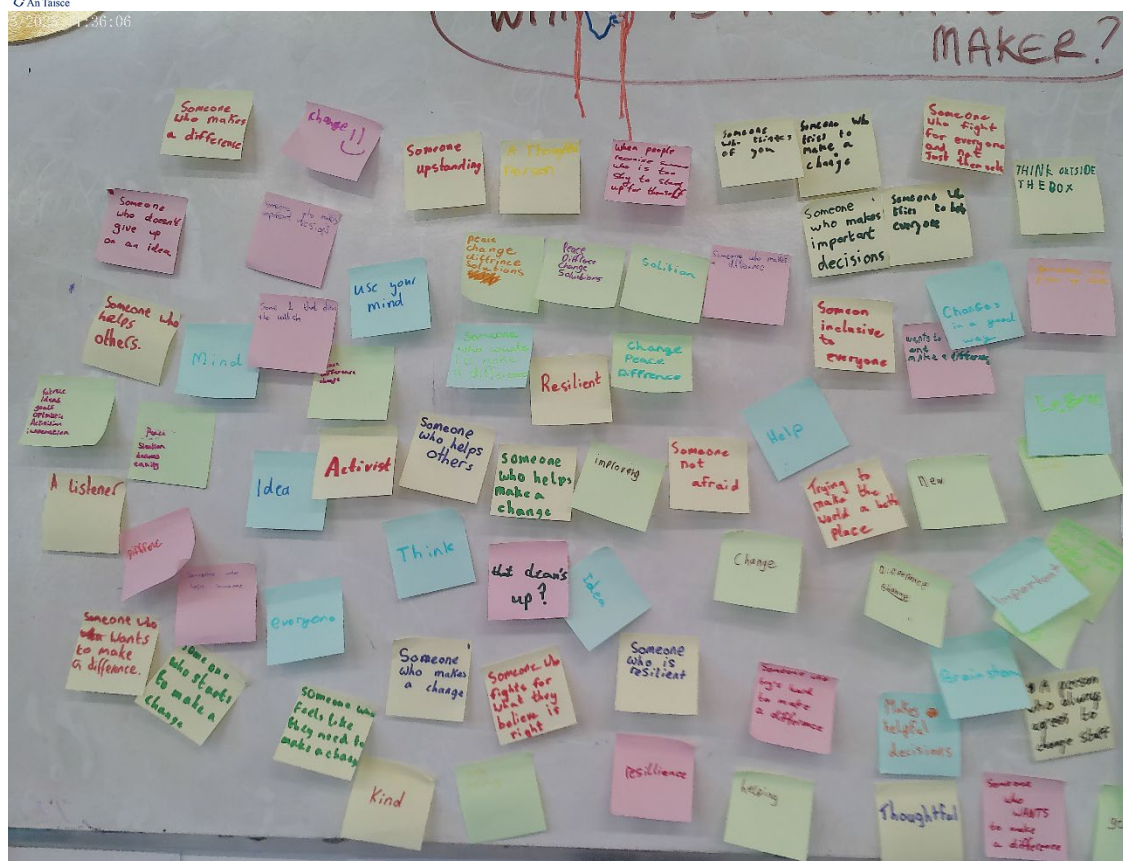 An Taisce
3/2025 11:36:06
IS A
MAKER?
Someone
who makes
a difference
change !!
Someone
upstanding
A Thoughtful
Person
When people
recognise someone
who is too
shy to stand
up for themself
Someone
who thinks
of you
Someone who
tries to
make a
change
Someone
who fight
for everyone
and not
Just themselfs
THINK OUTSIDE
THE BOX
Someone
who doesn't
give up
on an idea
Someone who makes
Someone
who makes
important
decisions
Someone who
tries to help
everyone
peace
change
diffrince
solutions
Peace
Diffrince
Change
Solutions
Solution
Someone who makes
a difference
use your
mind
Someone who
helps
others.
Mind
Someone
who wants
to make
a difference
Resilient
Change
Peace
Difference
Someon
inclusive
to
everyone
Changes
in a good
way
wants to
and
make a difference
ideas
goals
Activism
Peace
Solution
A Listener
Idea
Activist
Someone
who helps
others
Someone
who helps
make a
change
improving
Someone
not
afraid
Help
Trying to
make the
world a bett
place
New
Think
that dean's
up?
Idea
Change
Difference
Important
everyone
Someone who
help someone
Someone who
wants
to make
a difference.
Someone
who starts
to make a
change
Someone who
feels like
they need to
make a change
Someone
who makes
a change
Someone who
fights for
what they
believe is
right
Someone
who is
resilient
Someone who
trys hard
to make
a difference
Makes
helpful
decisions
Brainstorm
A person
who always
agrees to
change stuff
Kind
resillience
helping
Thoughtful
Someone
who
WANTS
to make
a difference
go